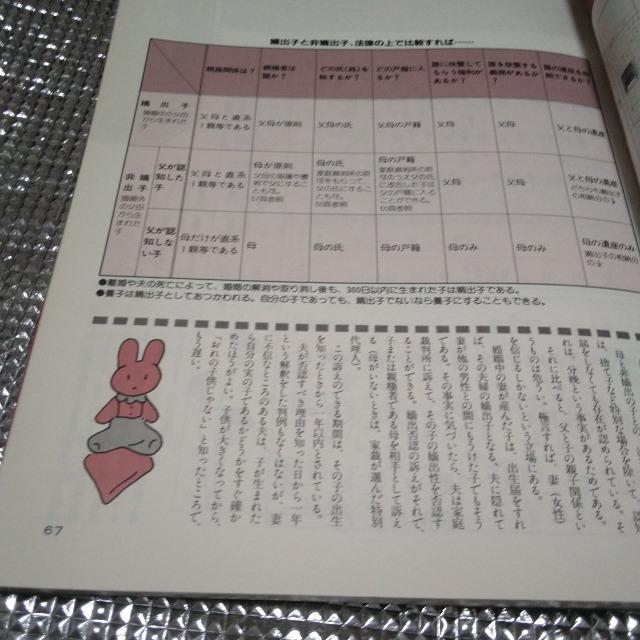 嫡出子と非嫡出子、法律の上で比較すれば……
親族関係は?
親権者は
誰か?
どの氏(姓)を
称するか?
どの戸籍に入
るか?
誰に扶養して
もらう権利が
あるか?
誰を扶養する
義務があるか?
誰の遺産を
嫡出子
婚姻中の父母
から生まれた
子
父母と直系
1親等である
父母が原則
父母の氏
父母の戸籍
父母
父母
父と母の遺産
非嫡出子
婚姻外の父母から生まれた子
父が認知した子
父母と直系
1親等である
母が原則
父母の協議や審
判で父にするこ
とも可。
母の氏
家庭裁判所の許
可をもらって、
父の氏にするこ
とも可。
母の戸籍
家庭裁判所の許
可で改氏した子は
父の戸籍に入る
ことができる。
父母
父母
父と母の遺産
父が認知しない子
母だけが直系
1親等である
母
母の氏
母の戸籍
母のみ
母のみ
母の遺産のみ
●離婚や夫の死亡によって、婚姻の解消や取り消し後も、300日以内に生まれた子は嫡出子である。
●養子は嫡出子としてあつかわれる。自分の子であっても、嫡出子でないなら養子にすることもできる。
は、捨て子など特別な場合を除いて、認
届をしなくても存在が認められている。そ
れは、分娩という事実があるためである。
それに比べると、父と子の親子関係とい
うものは危うい。極言すれば、妻(女性)
を信じるしかないという立場にある。
婚姻中の妻が産んだ子は、出生届をすれ
ば、その夫婦の嫡出子となる。夫に隠れて
妻が他の男性との間にもうけた子でもそう
である。その事実に気づいたら、夫は家庭
裁判所に訴えて、その子の嫡出性を否認す
ることができる。嫡出否認の訴えがそれで、
子または親権者である母を相手として訴え
る(母がいないときは、家裁が選んだ特別
代理人)。
この訴えのできる期間は、その子の出生
を知ったときから一年以内とされている。
夫が否認すべき理由を知った日から一年
という解釈をした判例もなくはないが、妻
に不信なところのある夫は、子が生まれた
ら自分の実の子であるかどうかをすぐ確か
めたほうがよい。子供が大きくなってから、
「おれの子供じゃない」と知ったところで、
もう遅い。
67